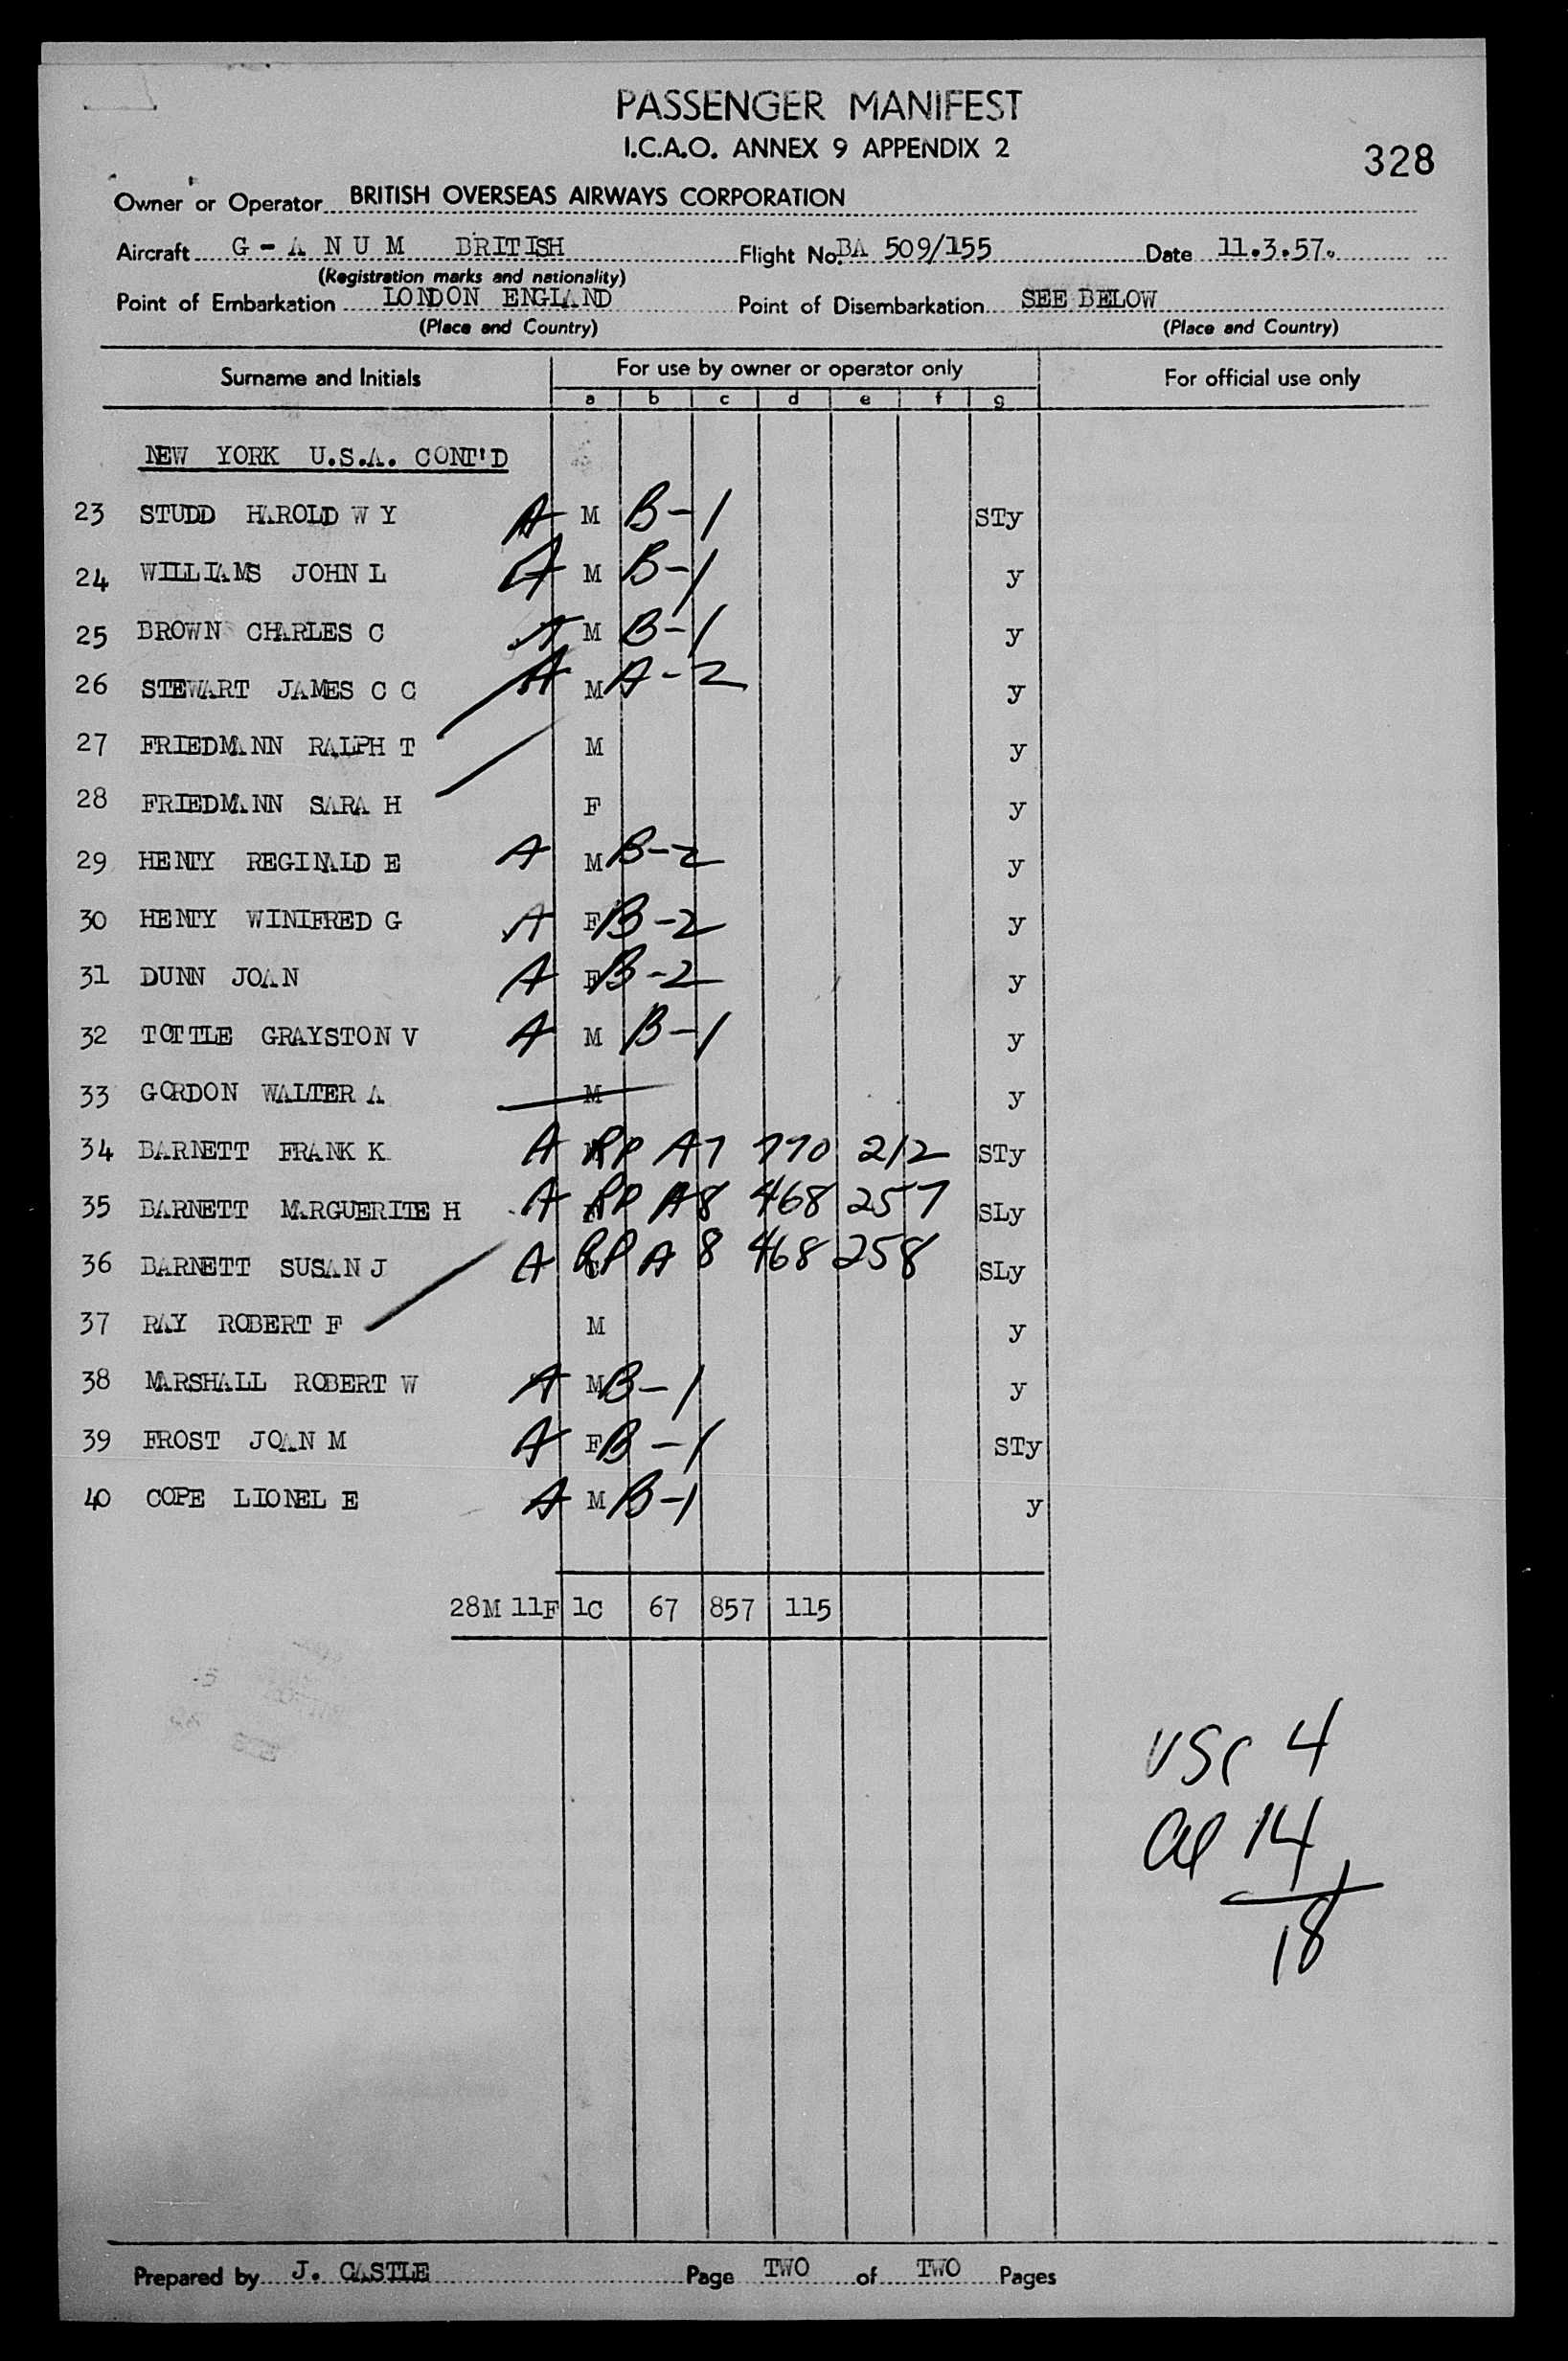 PASSENGER MANIFEST
I.C.A.O. ANNEX 9 APPENDIX 2
328
Owner or Operator BRITISH OVERSEAS AIRWAYS CORPORATION
Aircraft G - A N U M BRITISH Flight No. BA 509/155 Date 11.3.57.
(Registration marks and nationality)
Point of Embarkation LONDON ENGLAND Point of Disembarkation SEE BELOW
(Place and Country) (Place and Country)
Surname and Initials For use by owner or operator only For official use only
a b c d e f g
NEW YORK U.S.A. CONT'D
23 STUDD HAROLD W Y A M B-1 STy
24 WILLIAMS JOHN L A M B-1 y
25 BROWN CHARLES C A M B-1 y
26 STEWART JAMES C C A M A-2 y
27 FRIEDMANN RALPH T M y
28 FRIEDMANN SARA H F y
29 HENTY REGINALD E A M B-2 y
30 HENTY WINIFRED G A F B-2 y
31 DUNN JOAN A F B-2 y
32 TOTTLE GRAYSTON V A M B-1 y
33 GORDON WALTER A M y
34 BARNETT FRANK K A RP A7 770 212 STy
35 BARNETT MARGUERITE H A RP A8 468 257 SLy
36 BARNETT SUSAN J A RP A 8 468 258 SLy
37 RAY ROBERT F M y
38 MARSHALL ROBERT W A M B-1 y
39 FROST JOAN M A F B-1 STy
40 COPE LIONEL E A M B-1 y
28M 11F 1C 67 857 115
USC 4
al 14
18
Prepared by J. CASTLE Page TWO of TWO Pages